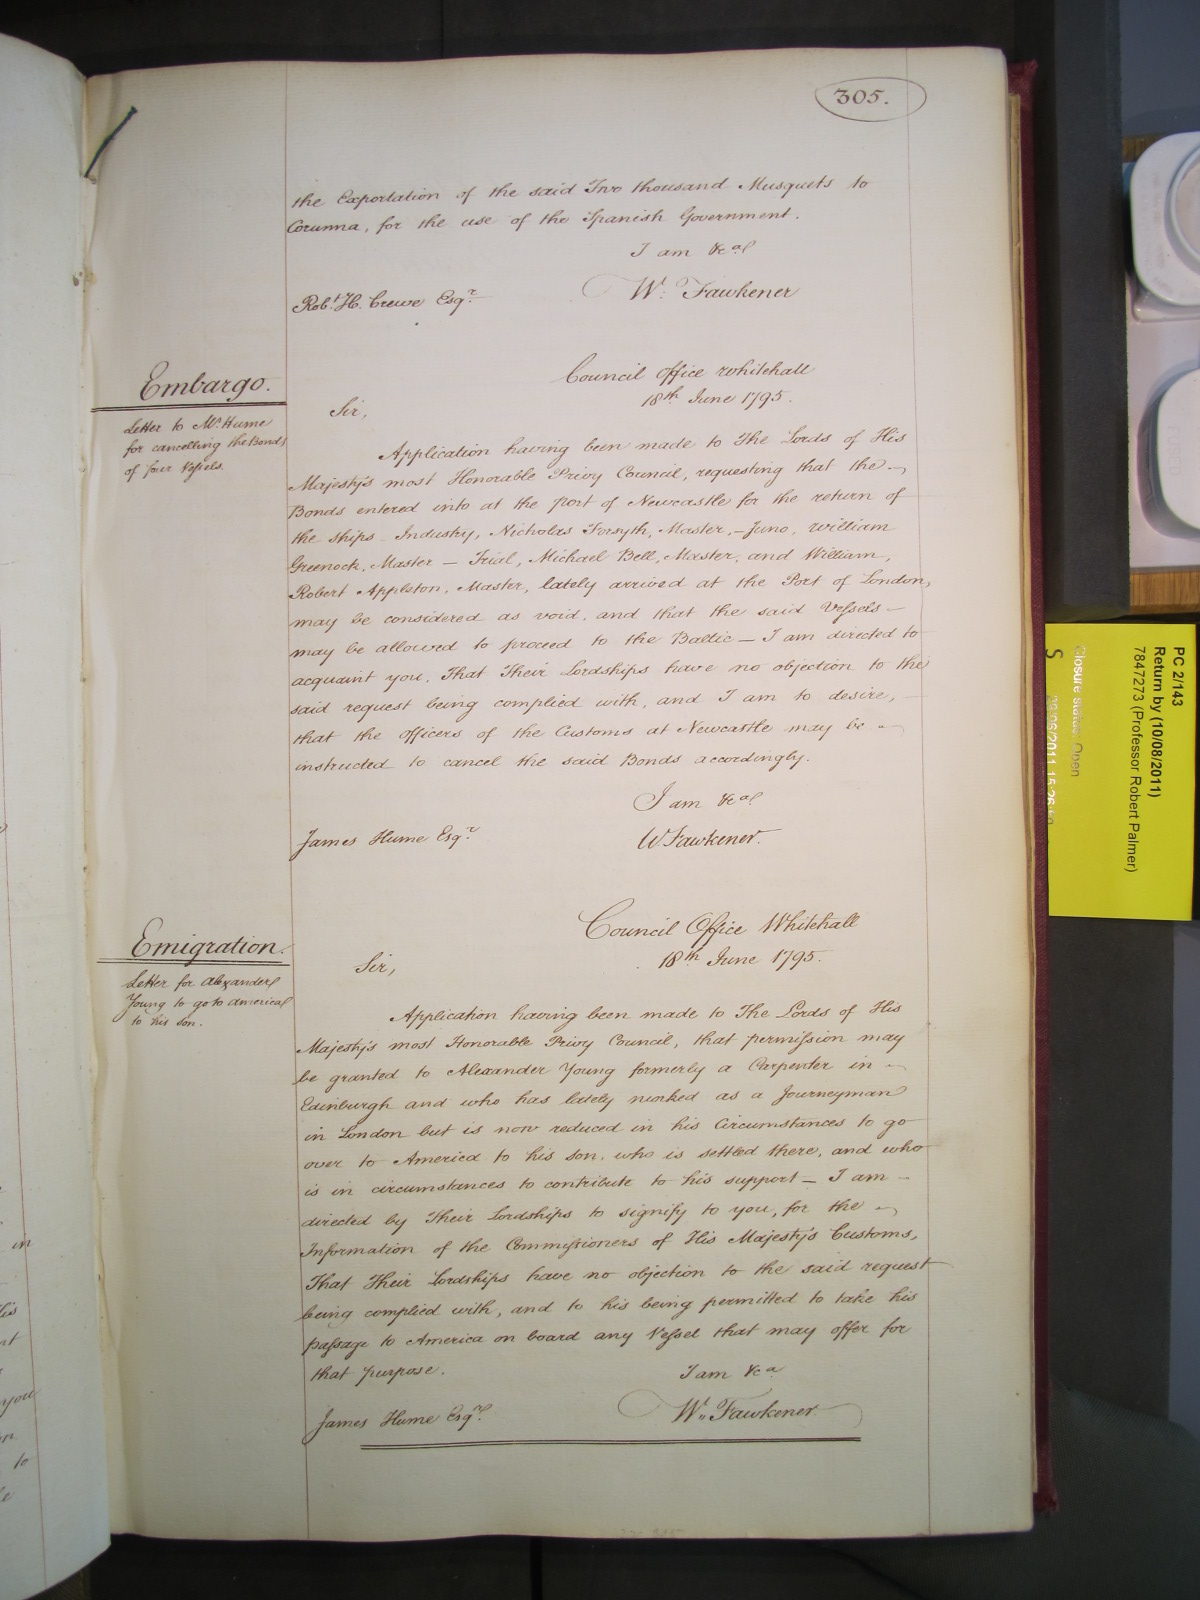 305.
the Exportation of the said Two thousand Musquets to
Corunna, for the use of the Spanish Government.
I am &c.a
Rob.t H. Crewe Esq.r
W. Fawkener
Embargo.
Letter to Mr. Hume
for cancelling the Bonds
of four Vessels.
Council Office Whitehall
18th June 1795.
Sir,
Application having been made to The Lords of His
Majesty's most Honorable Privy Council, requesting that the
Bonds entered into at the Port of Newcastle for the return of
the Ships Industry, Nicholas Forsyth, Master, – Juno, William
Greenock, Master – Trial, Michael Bell, Master, and William,
Robert Appleton, Master, lately arrived at the Port of London,
may be considered as void, and that the said Vessels –
may be allowed to proceed to the Baltic – I am directed to
acquaint you, That Their Lordships have no objection to the
said request being complied with, and I am to desire, –
that the Officers of the Customs at Newcastle may be
instructed to cancel the said Bonds accordingly.
I am &c.a
James Hume Esq.r
W Fawkener.
Emigration.
Letter for Alexander
Young to go to America
to his son.
Council Office Whitehall
18th June 1795.
Sir,
Application having been made to The Lords of His
Majesty's most Honorable Privy Council, that permission may
be granted to Alexander Young formerly a Carpenter in
Edinburgh and who has lately worked as a Journeyman
in London but is now reduced in his Circumstances to go
over to America to his son, who is settled there, and who
is in circumstances to contribute to his support – I am –
directed by Their Lordships to signify to you, for the
Information of the Commissioners of His Majesty's Customs,
That Their Lordships have no objection to the said request
being complied with, and to his being permitted to take his
passage to America on board any Vessel that may offer for
that purpose.
I am &c.a
James Hume Esq.r
W. Fawkener
PC 2/143
Return by (10/08/2011)
7847273 (Professor Robert Palmer)
Closure status: Open
S
in
you
to